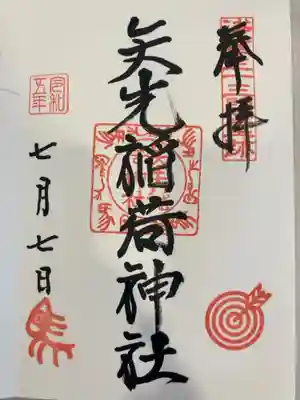 奉拝
矢先稲荷神社
令和
五年
七月七日